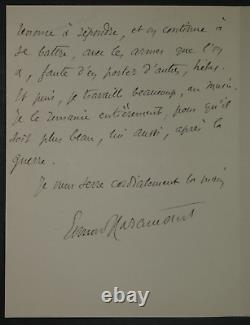 renonce à répondre, et on continue à
se battre, avec les armes que l'on
a, faute d'en porter d'autres, hélas.
Et puis, je travaille beaucoup, au musée.
Je le remanie entièrement, pour qu'il
soit plus beau, lui aussi, après la
guerre.
Je vous serre cordialement la main
Edmond Haraucourt